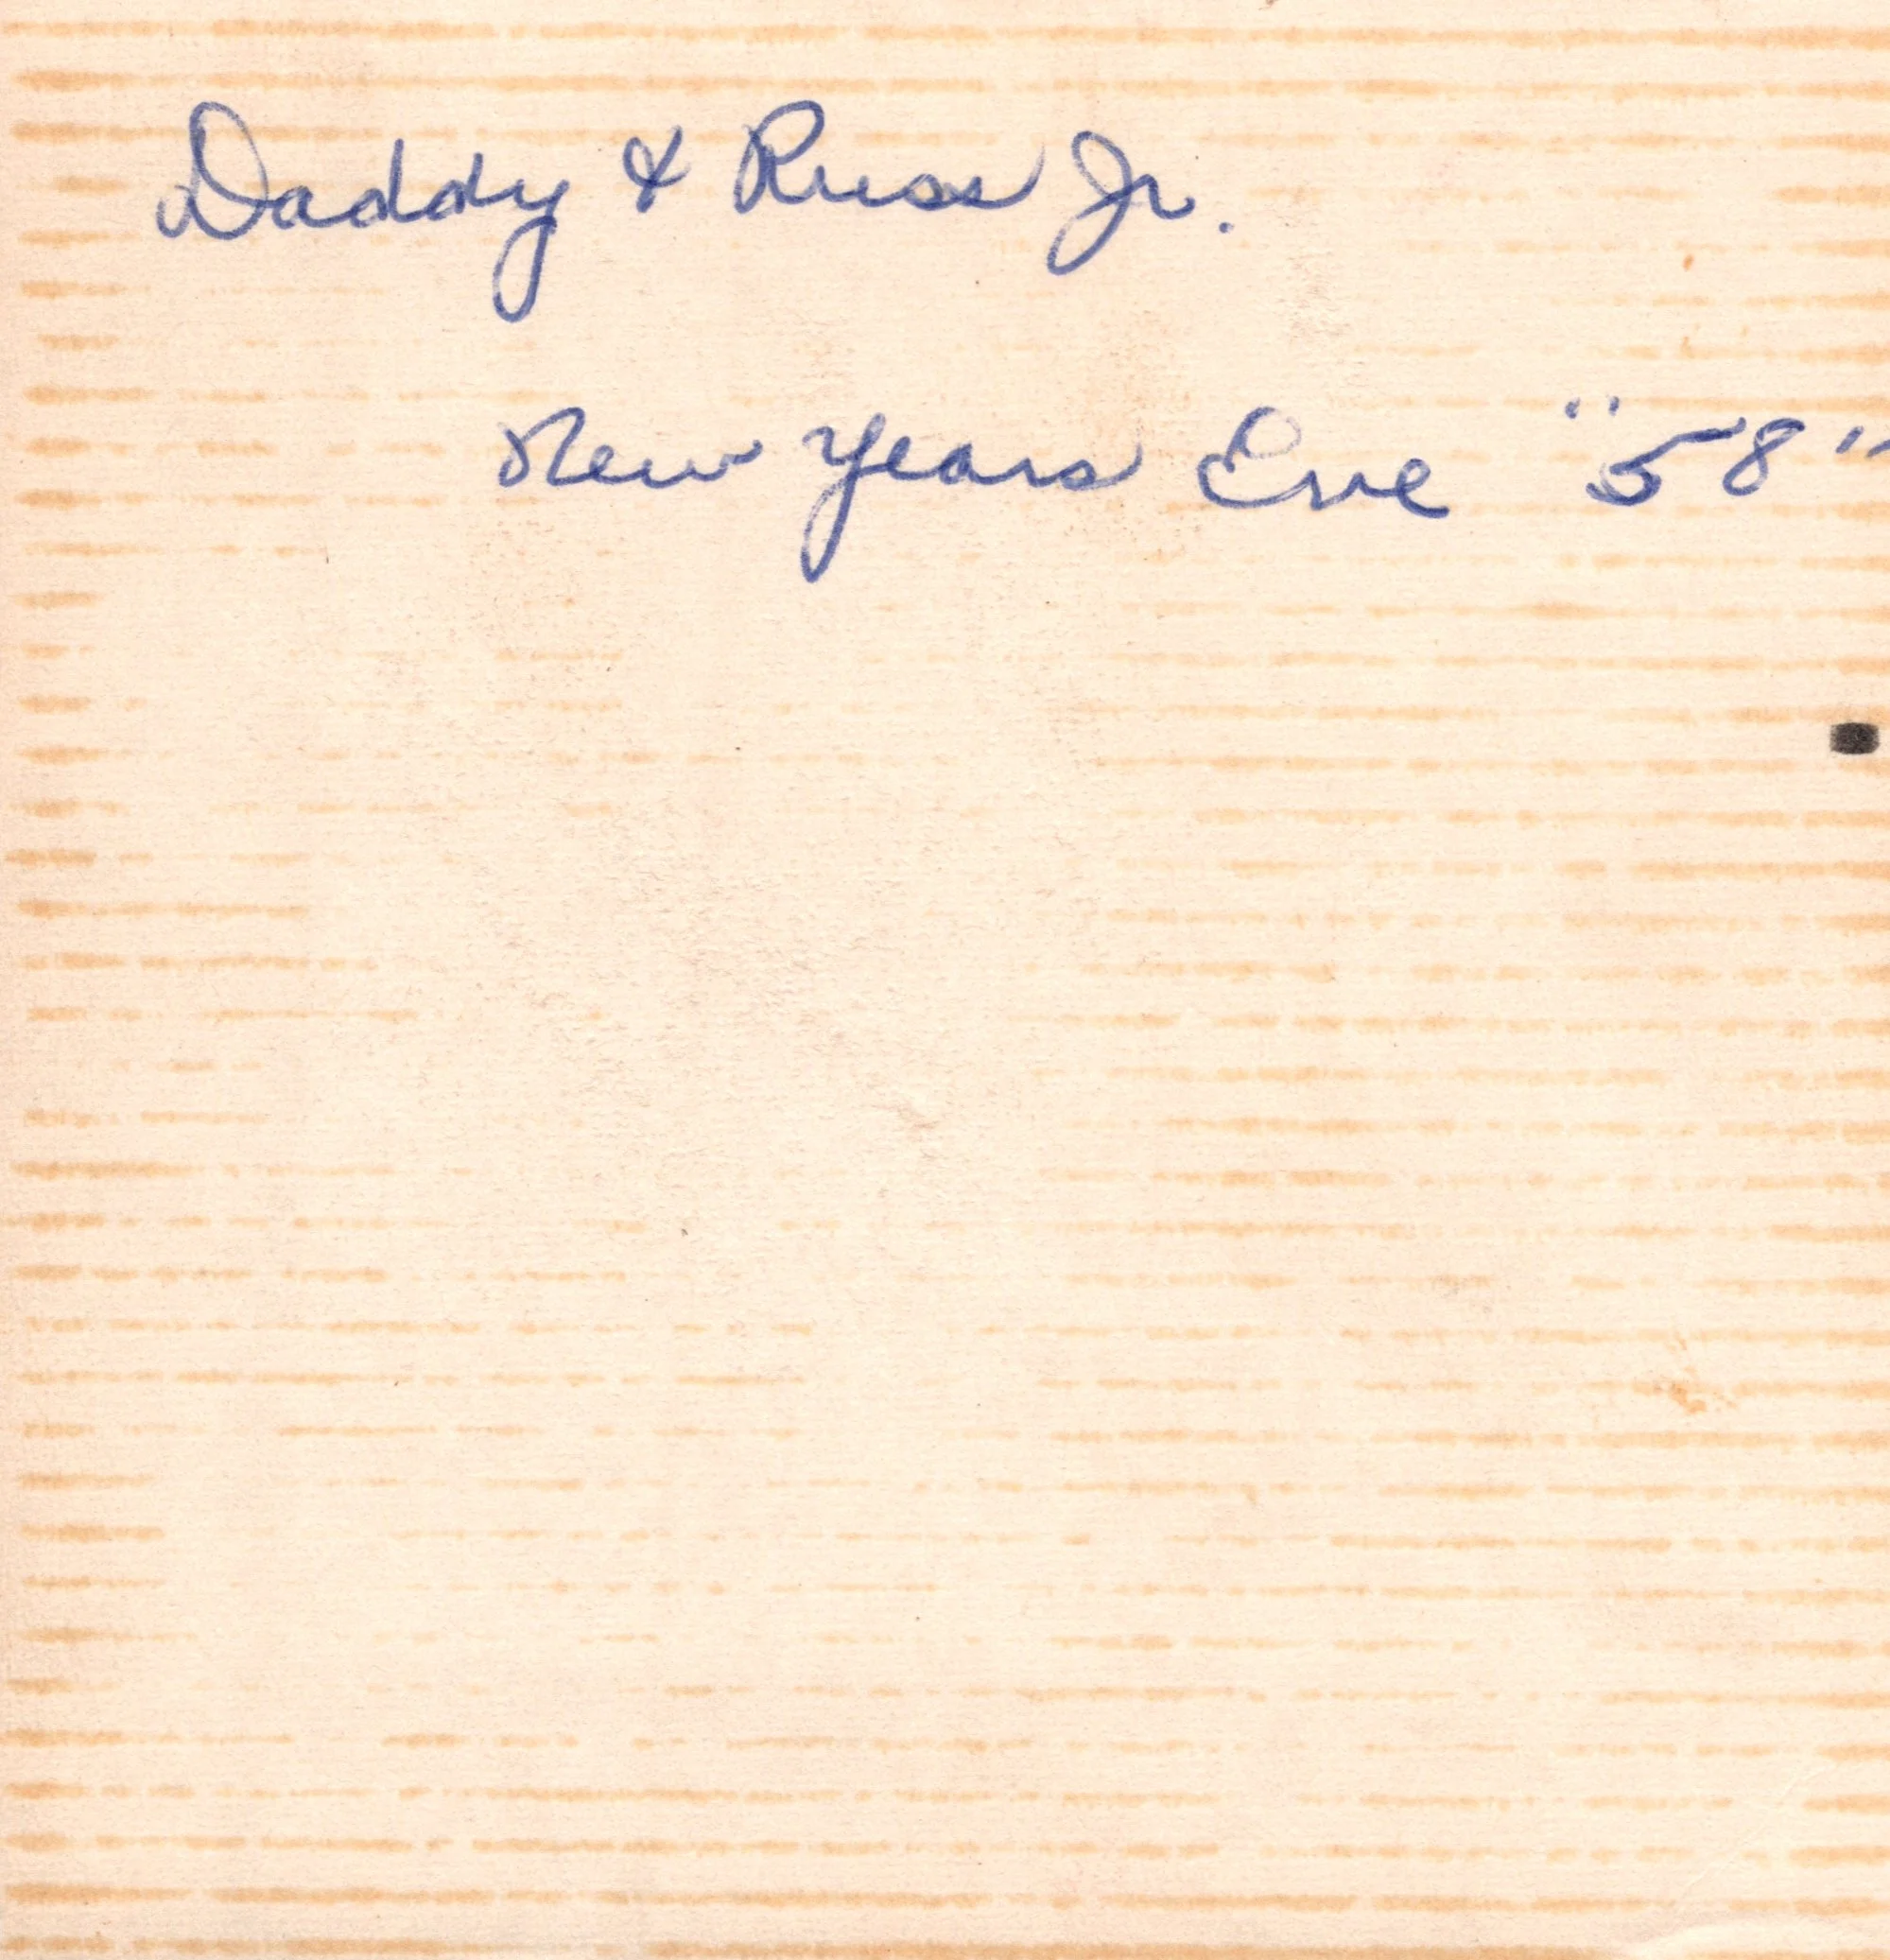 Daddy & Russ Jr.
New Years Eve "58"